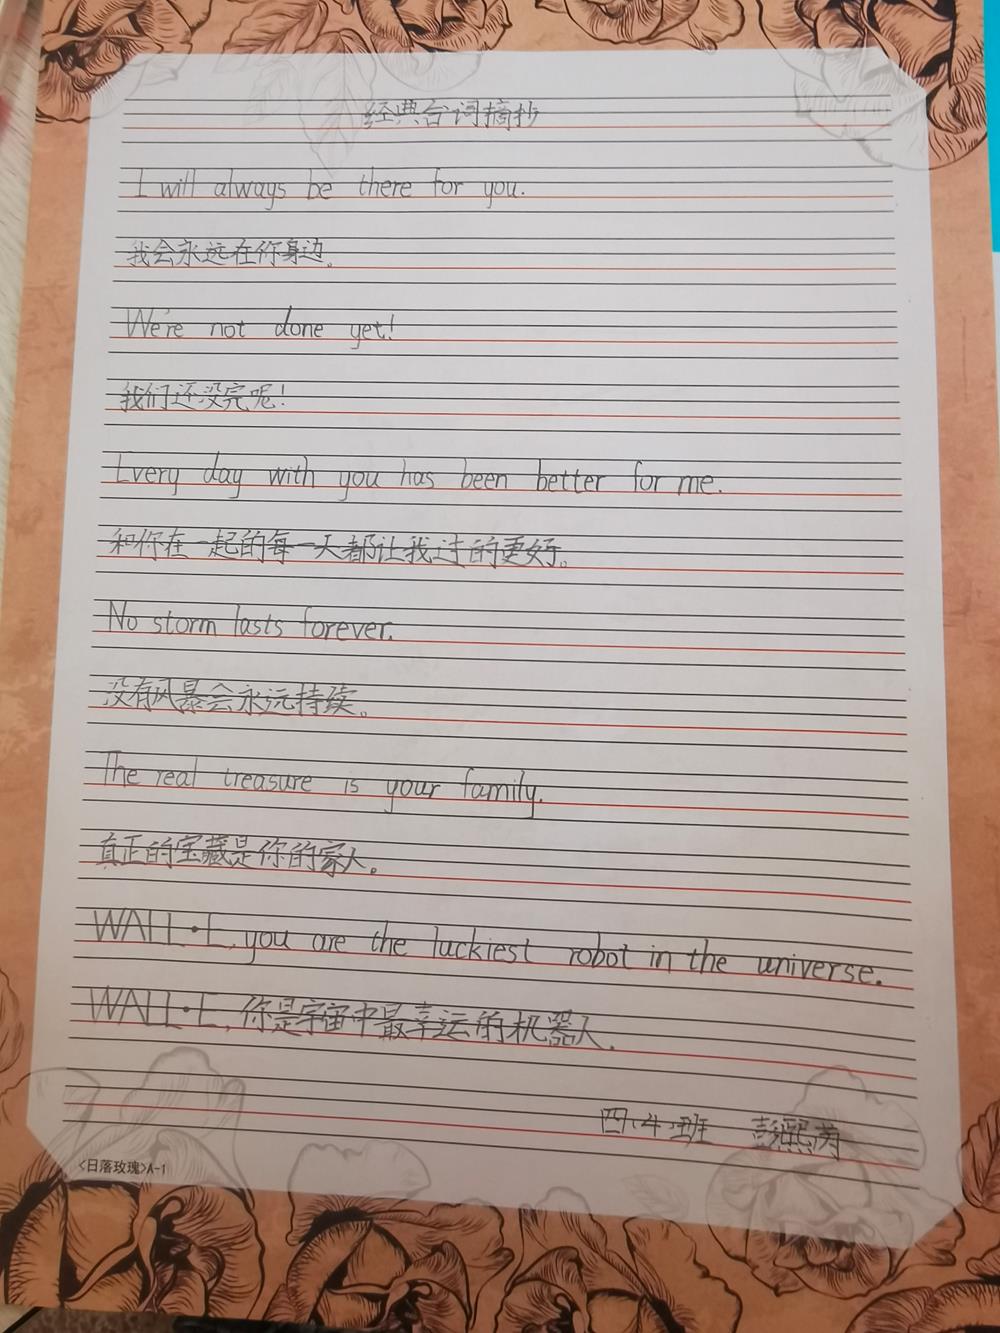 经典台词摘抄
I will always be there for you.
我会永远在你身边。
We're not done yet!
我们还没完呢！
Every day with you has been better for me.
和你在一起的每一天都让我过的更好。
No storm lasts forever.
没有风暴会永远持续。
The real treasure is your family.
真正的宝藏是你的家人。
WALL·E, you are the luckiest robot in the universe.
WALL·E, 你是宇宙中最幸运的机器人.
四.4班 彭熙芮
<日落玫瑰>A-1